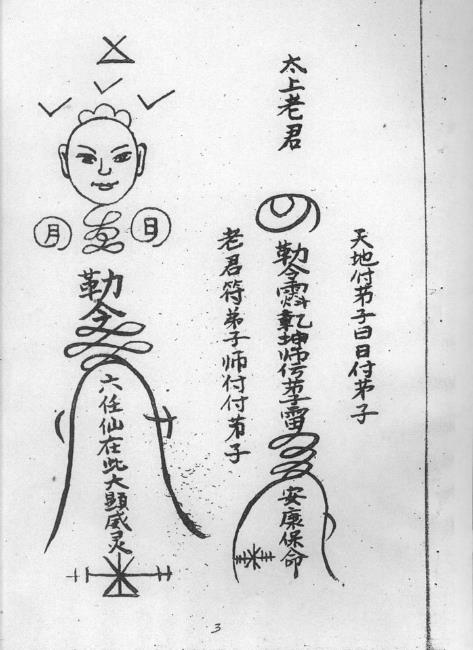 天地付苐子曰日付苐子
太上老君
勒令
乾坤师
苐子雷
安康保命
老君符弟子师付付苐子
日
月
勒令
六任仙在此大顯威灵
3